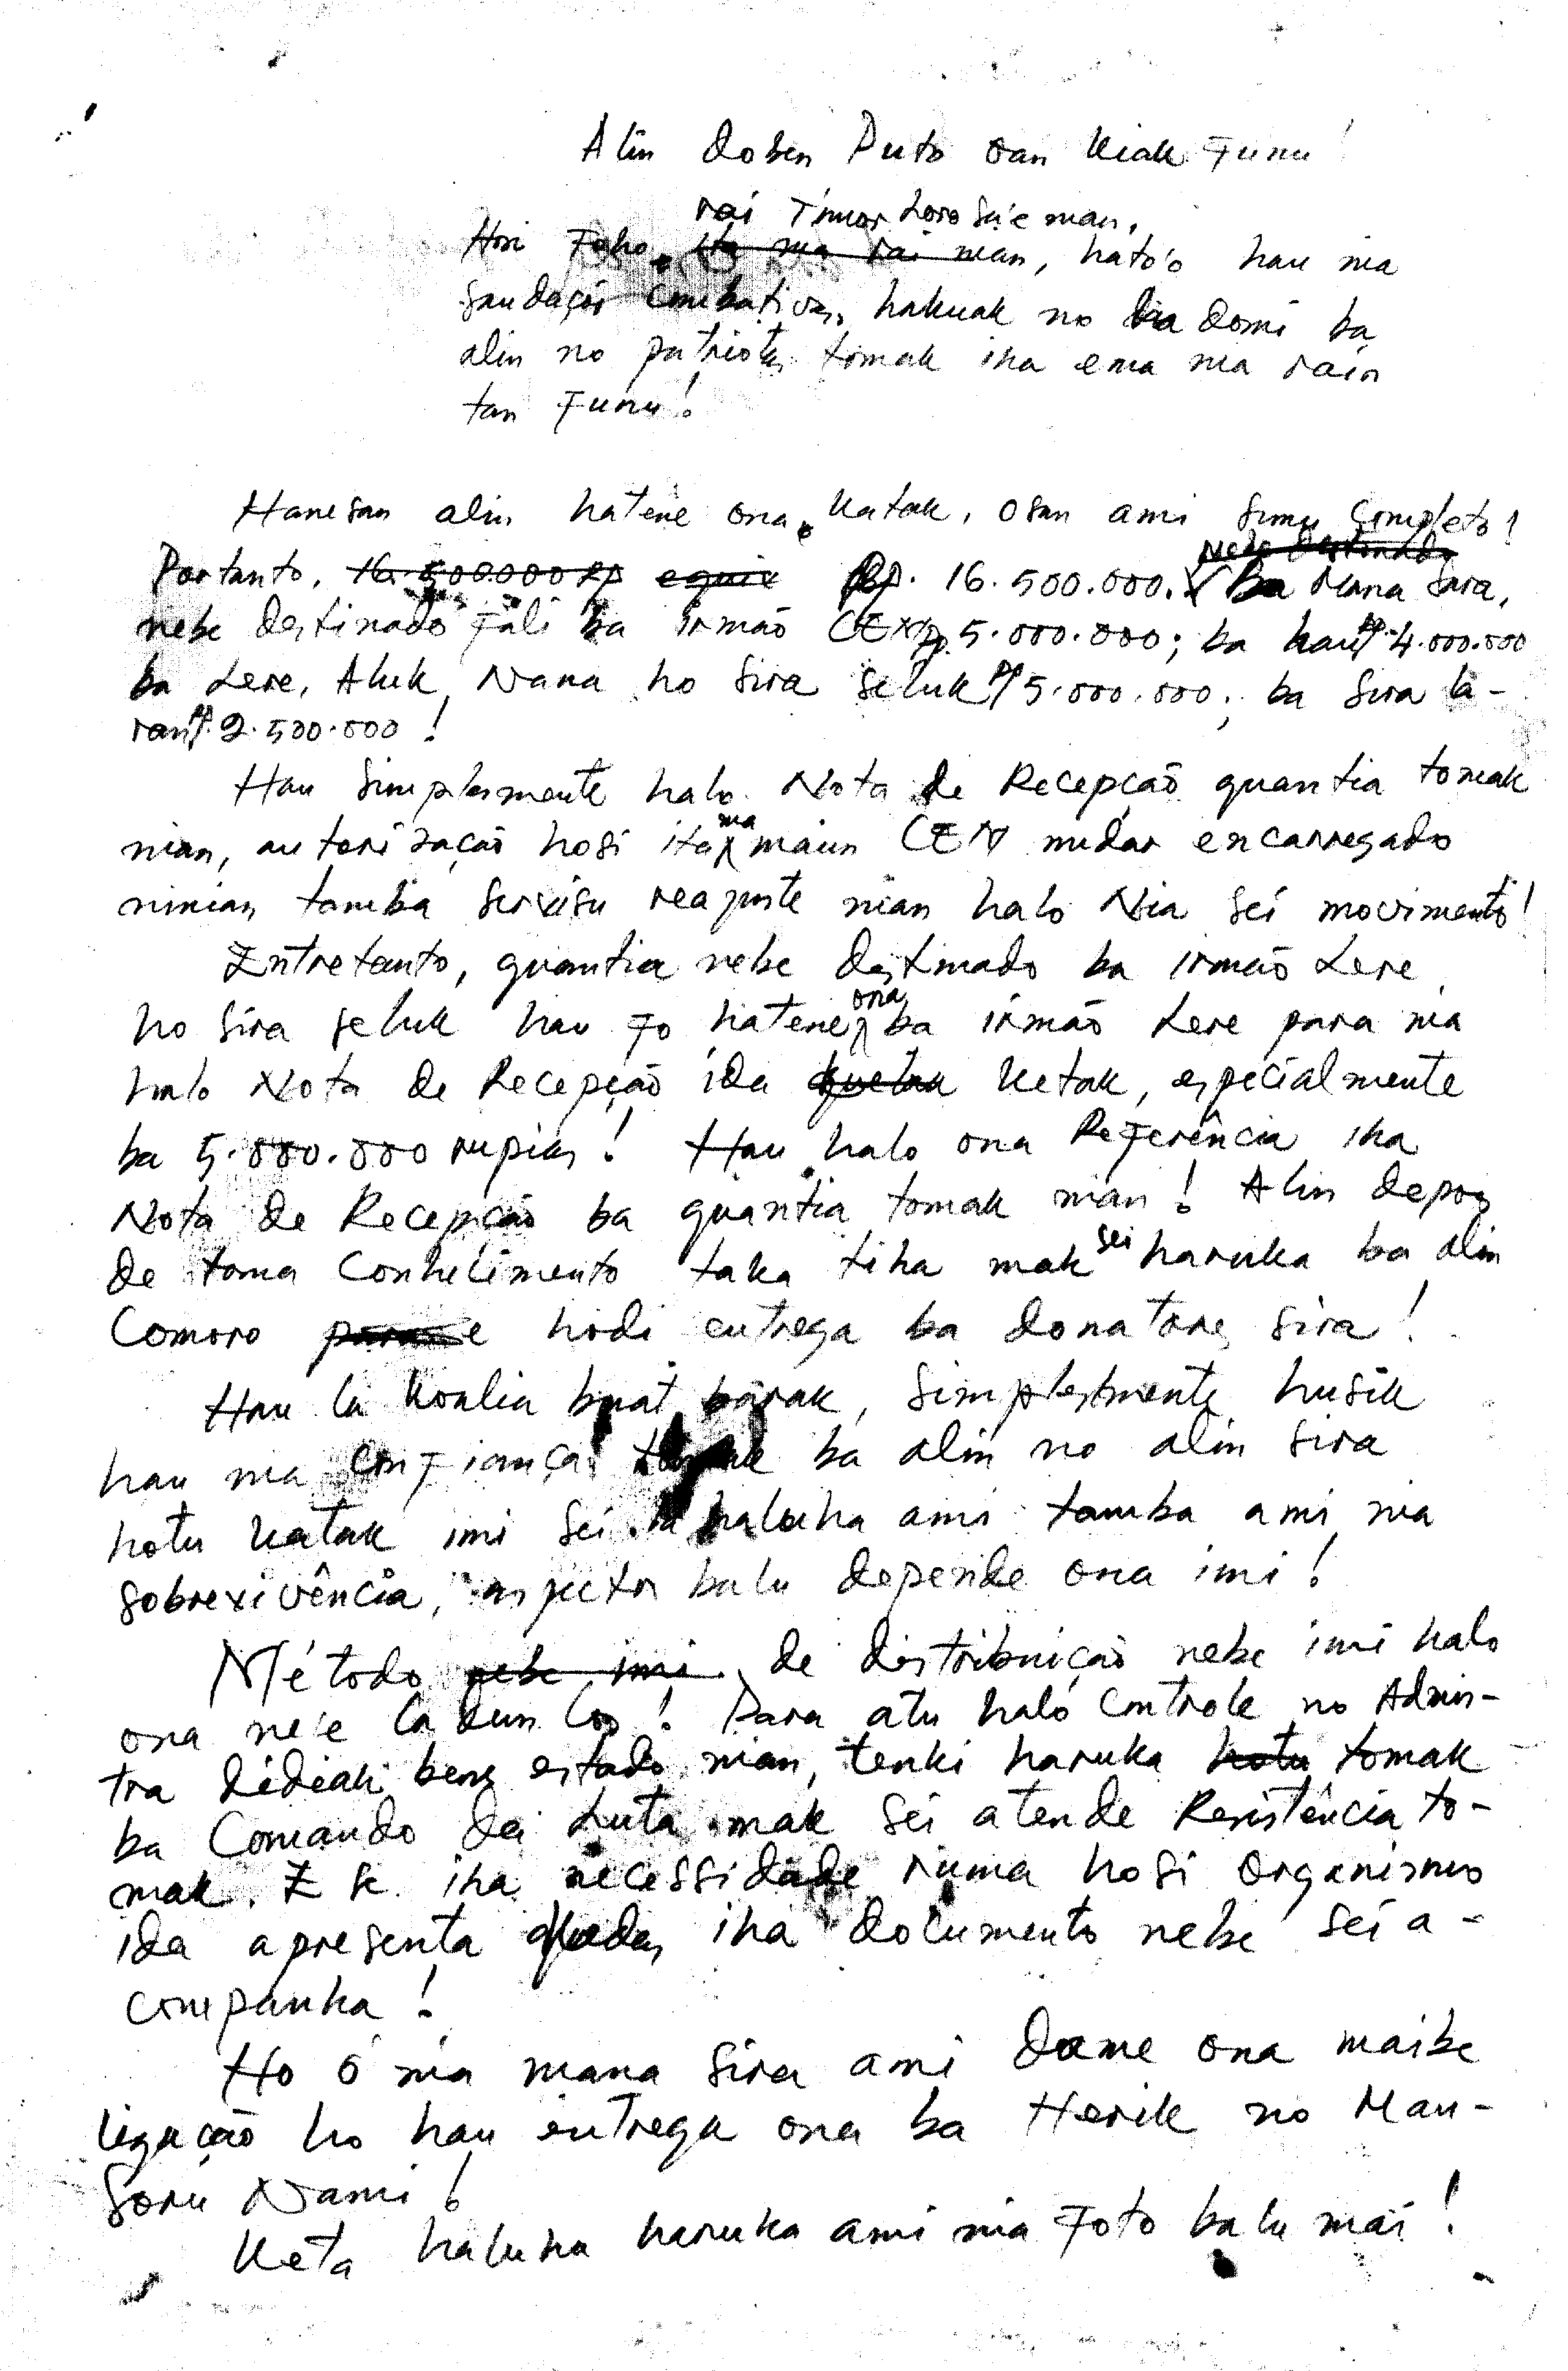 Alin doben Puto oan kiak Funu!
rai Timor Loro Sa'e nian,
Hosi Foho ita nia rai nian, hato'o hau nia
saudações combativas, hakuak no domi ba
alin no patriotas tomak iha ema nia rain
tan Funu!
Hanesan alin hatene ona katak, osan ami simu completo!
nebe destinado
Portanto, 16.500.000 Rp equiv Rp. 16.500.000. Ba Mana Sara,
nebe destinado fali ba irmão CEXN Rp. 5.000.000; ba hau Rp. 4.000.000
ba Lere, Aluk, Nana ho sira seluk Rp 5.000.000; ba sira la-
ran Rp. 2.500.000!
Hau simplesmente halo Nota de Recepção quantia tomak
nian, autorização hosi ita nia maun CEN nudar encarregado
ninian tamba servisu reajuste nian halo Nia sei movimento!
Entretanto, quantia nebe destinado ba irmão Lere
ho sira seluk hau fo hatene ona ba irmão Lere para nia
halo Nota de Recepção ida ketak, especialmente
ba 5.000.000 rupias! Hau halo ona Referência iha
Nota de Recepção ba quantia tomak nian! Alin depois
de toma conhecimento taka tiha mak sei haruka ba alin
Comoro hodi entrega ba donatores sira!
Hau la koalia buat barak, simplesmente husik
hau nia confiança tomak ba alin no alin sira
hotu katak imi sei la haluha ami tamba ami nia
sobrexivência, aspectos balu depende ona imi!
Método nebe imi de distribuição nebe imi halo
ona ne'e la dun los! Para atu halo controle no Adminis-
tra didiak bens estado nian, tenki haruka hotu tomak
ba Comando da Luta mak sei atende Resistência to-
mak. E se iha necessidade ruma hosi organismo
ida apresenta kedas iha documento nebe sei a-
companha!
Ho ó nia mana sira ami dame ona maibe
ligação ho hau entrega ona ba Herik no Mau-
Soru Nami!
Keta haluha haruka ami nia foto balu mai!